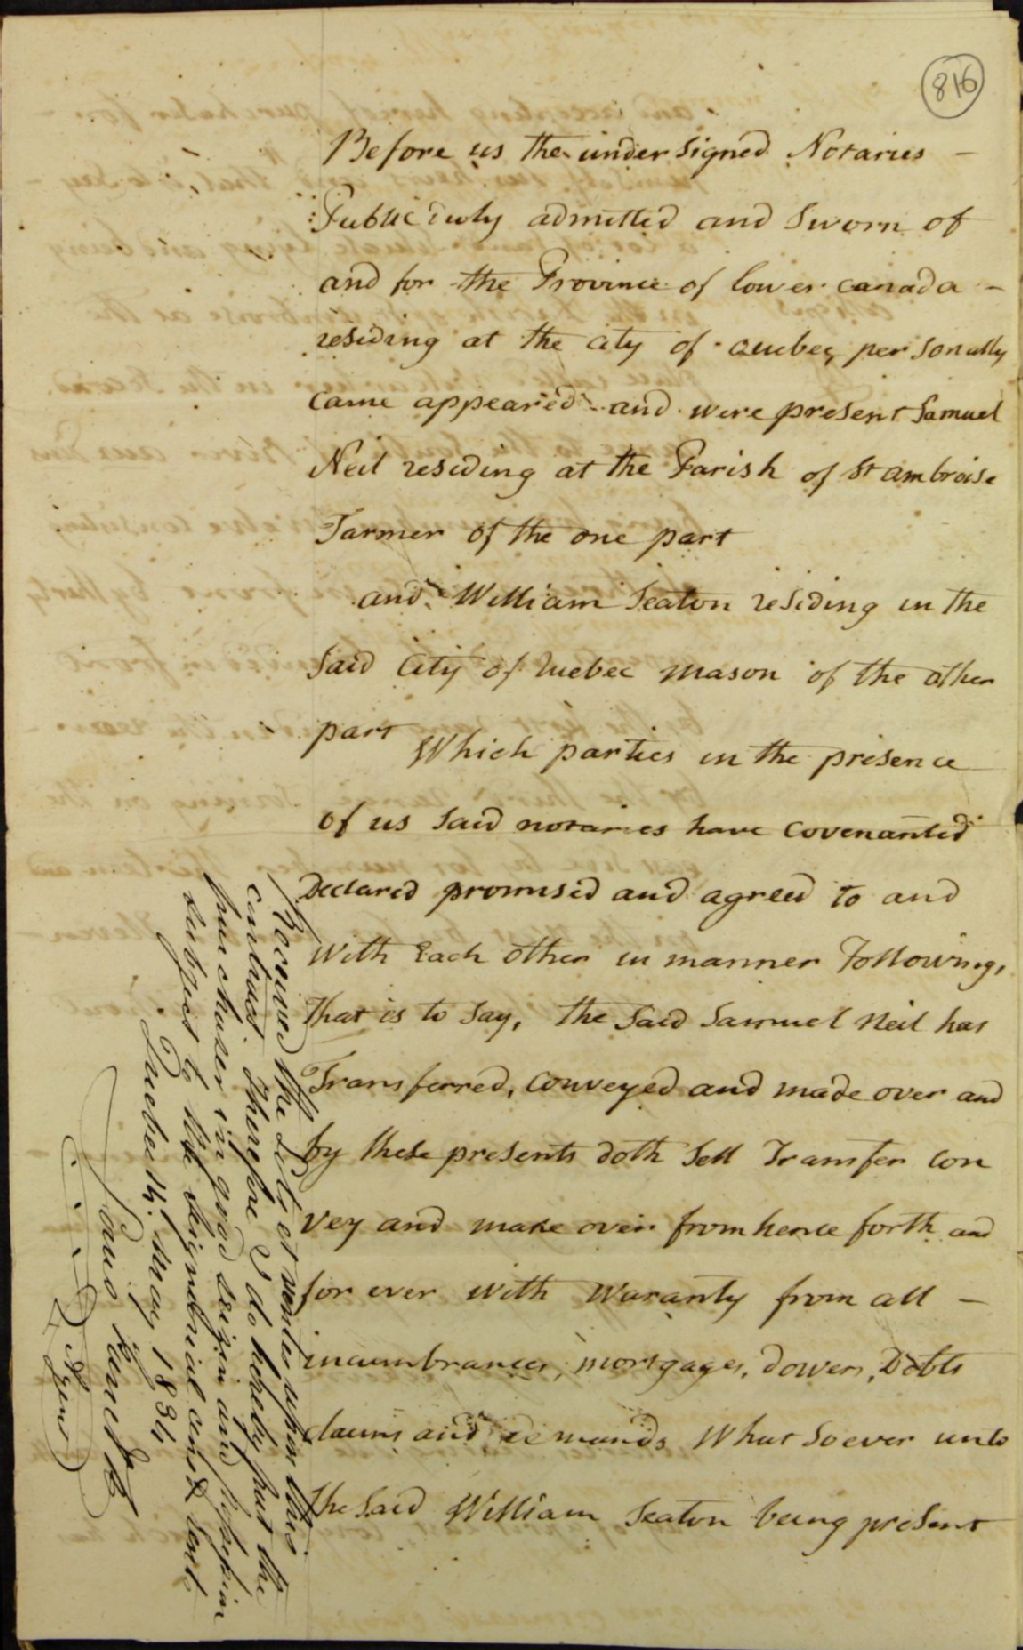 816
Before us the undersigned Notaries —
Public duly admitted and Sworn of
and for the Province of lower canada —
residing at the city of quebec, personally
came appeared and were present Samuel
Neil residing at the Parish of St ambroise
Farmer of the one part
and William Seaton residing in the
Said City of Quebec Mason of the other
part Which parties in the presence
of us Said notaries have covenanted
Declared promised and agreed to and
With Each other in manner Following,
That is to Say, the Said Samuel Neil has
Transferred, Conveyed and made over and
by these presents doth Sell Transfer Con
vey and make over from hence forth and
for ever with Waranty from all —
incumbrances, mortgages, dowers, Debts
claims and demands What Soever unto
The Said William Seaton being present
Received the Lods et ventes upon this
contract Therefore I do hereby put the
purchaser in good seizin and
subject to the seignorial cens & rents
Quebec 14 May 1834
Louis Panet
Agent